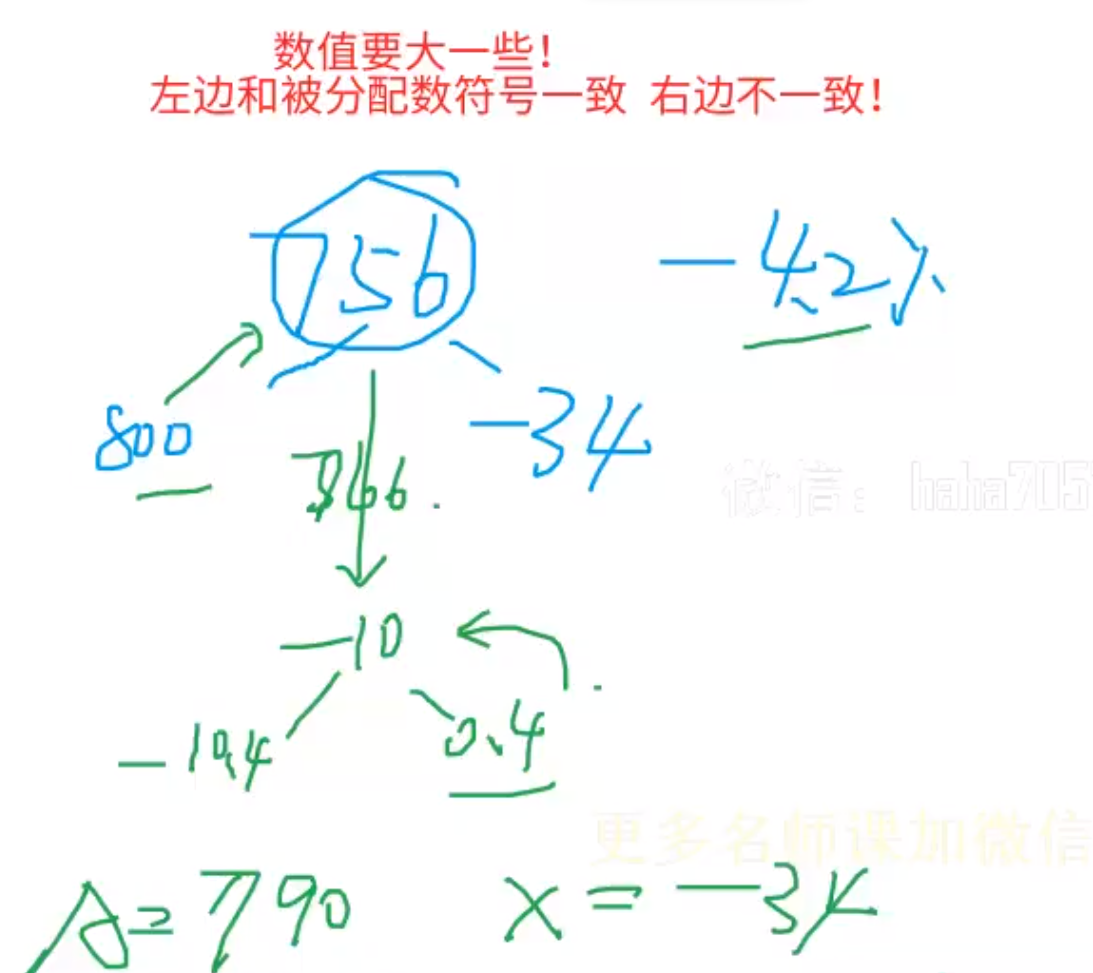 数值要大一些！
左边和被分配数符号一致 右边不一致！
756 -4.2%
800 -34
766.
微信：haha705
-10
-10.4 0.4
更多名师课加微信
A=790 x=-34